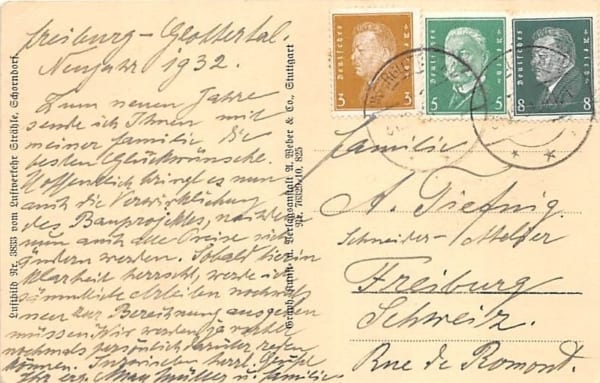 Freiburg-Glottertal.
Neujahr 1932.
Zum neuen Jahre
sende ich Ihnen mit
meiner Familie die
besten Glückwünsche.
Hoffentlich bringt es nun
auch die Verwirklichung
des Bauprojektes, nachdem
nun auch die Preise sich
ändern werden. Sobald hierin
Klarheit herrscht, werde ich
sämtliche Arbeiten nochmals
neu zur Berechnung ausgeben
müssen. Wir werden ja vorher
nochmals persönlich darüber reden
können. Inzwischen herzl. Grüße
Ihr erg. Max Müller u. Familie.
Luftbild Nr. 3833 vom Luftverkehr Strähle, Schorndorf.
Graph. Kunst- u. Verlagsanstalt A. Weber & Co., Stuttgart
Nr. 76329 10, 825
Deutsches Reich
3 3
Deutsches Reich
5 5
Deutsches Reich
8 8
Familie
A. Tiefnig
Schneider-Atelier
Freiburg
Schweiz.
Rue de Romont.